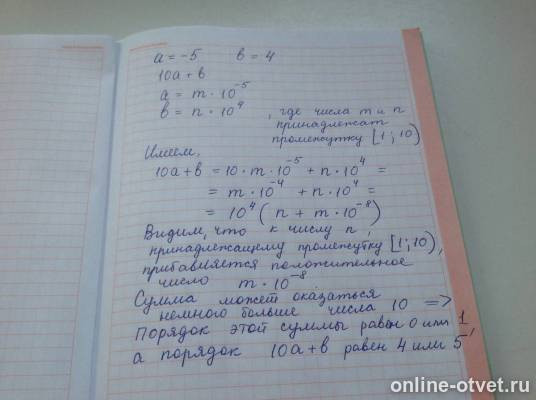 a = -5   b = 4
10a + b
a = m · 10⁻⁵
b = n · 10⁴ , где числа m и n
принадлежат
промежутку [1; 10)
Имеем,
10a + b = 10 · m · 10⁻⁵ + n · 10⁴ =
= m · 10⁻⁴ + n · 10⁴ =
= 10⁴ (n + m · 10⁻⁸)
Видим, что к числу n,
принадлежащему промежутку [1; 10),
прибавляется положительное
число m · 10⁻⁸.
Сумма может оказаться
немного больше числа 10 =>
Порядок этой суммы равен 0 или 1,
а порядок 10a + b равен 4 или 5
online-otvet.ru